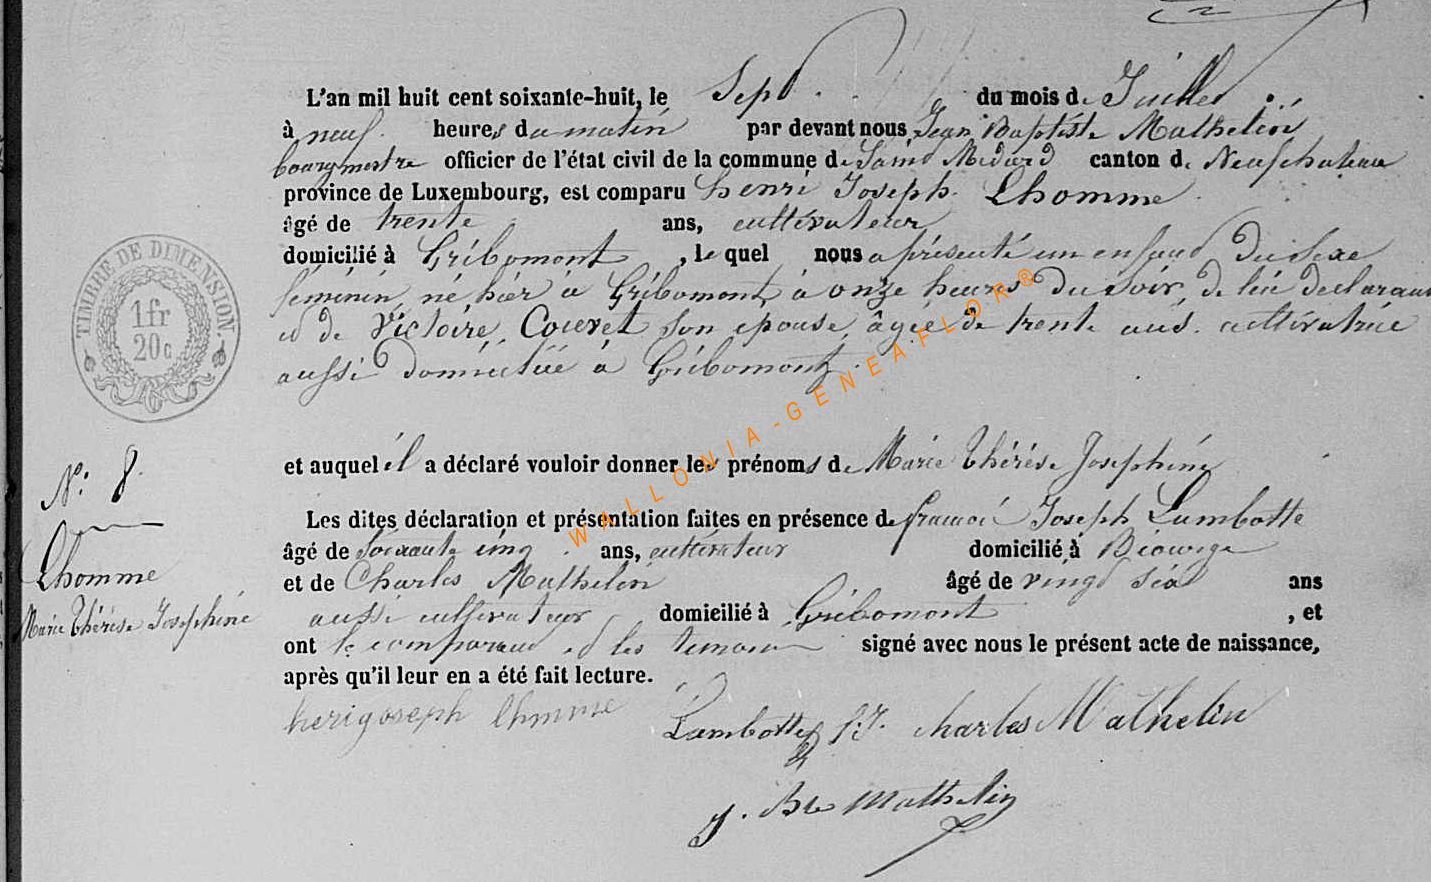 L'an mil huit cent soixante-huit, le Sept du mois de Juillet
à neuf heures du matin par devant nous Jean Baptiste Mathelin
bourgmestre officier de l'état civil de la commune de Saint Médard canton de Neufchateau
province de Luxembourg, est comparu henri Joseph Lhomme
âgé de trente ans, cultivateur
domicilié à Gribomont, le quel nous a présenté un enfant du sexe
féminin, né hier à Gribomont, à onze heures du soir, de lui déclarant
et de Victoire Couvet son épouse, âgée de trente ans, cultivatrice
aussi domiciliée à Gribomont
et auquel il a déclaré vouloir donner les prénoms de Marie Thérèse Joséphine
Les dites déclaration et présentation faites en présence de françois Joseph Lambotte
âgé de soixante cinq ans, cultivateur domicilié à
et de Charles Mathelin âgé de vingt six ans
aussi cultivateur domicilié à Gribomont, et
ont le comparant et les témoins signé avec nous le présent acte de naissance,
après qu'il leur en a été fait lecture.
herigoseph lhmme
Lambotte f.J. charles Mathelin
J. Bte Mathelin
N° 8.
Lhomme
Marie Thérèse Joséphine
TIMBRE DE DIMENSION
1fr
20c
WALLONIA-GENEAFLOR®